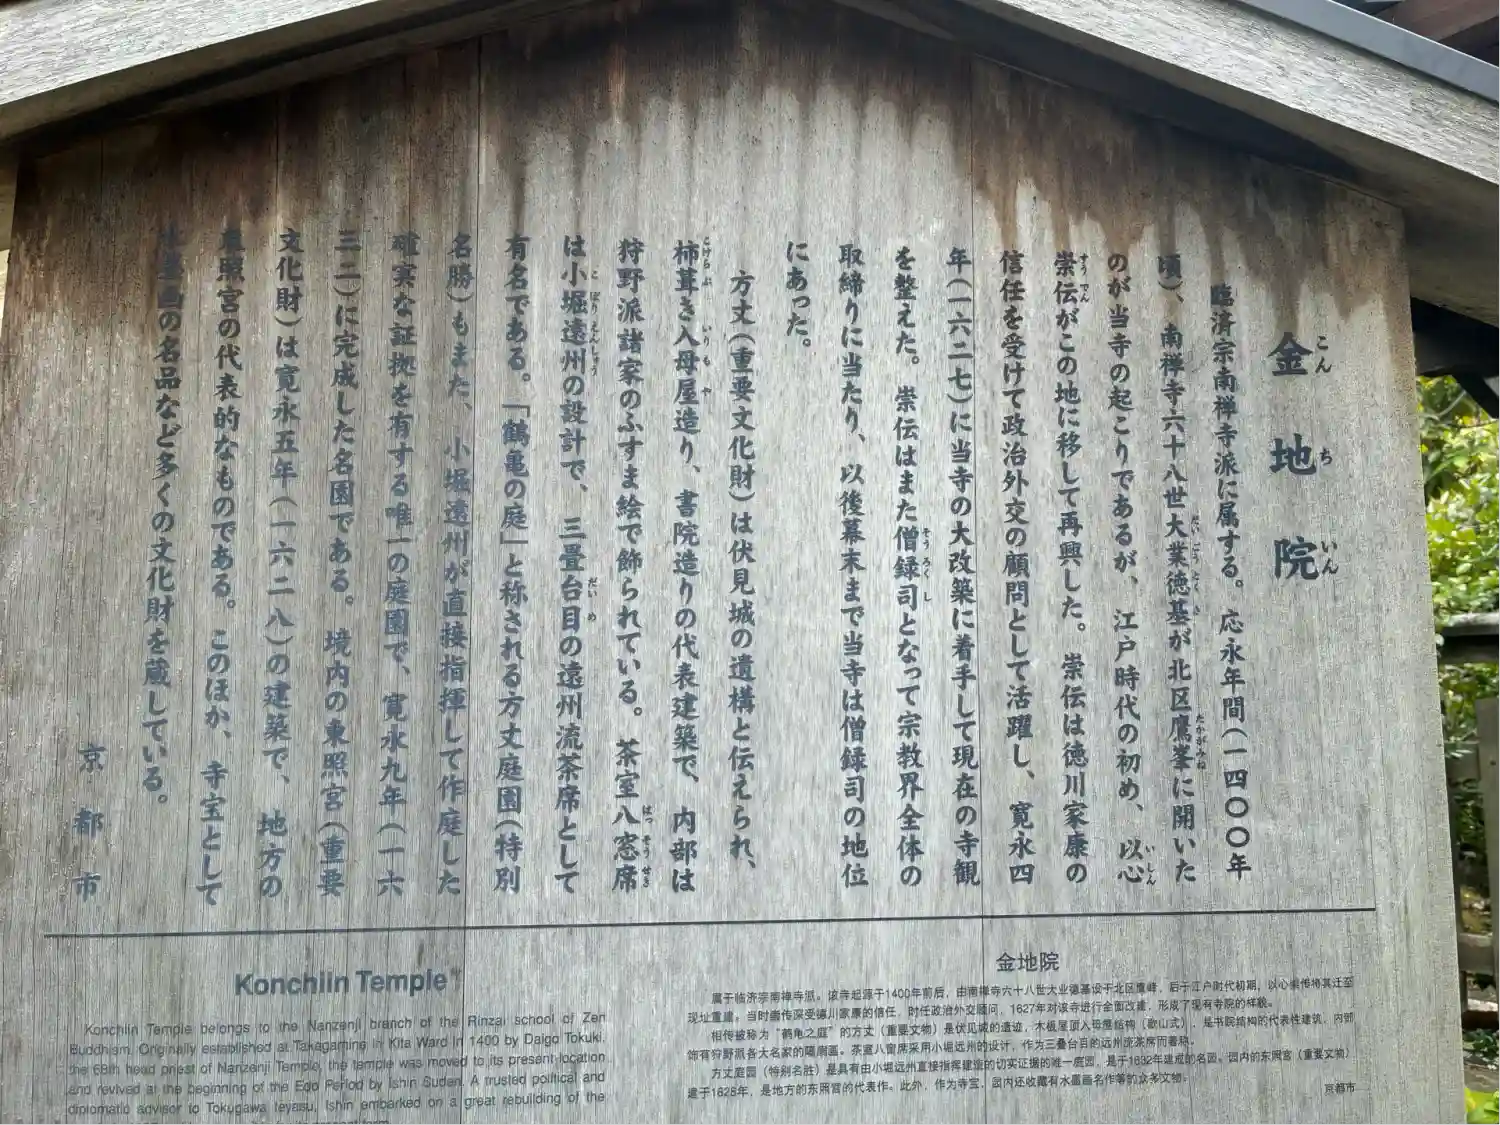 金地院
こんちいん
臨済宗南禅寺派に属する。応永年間(一四〇〇年
頃)、南禅寺六十八世大業徳基が北区鷹峯に開いた
のが当寺の起こりであるが、江戸時代の初め、以心
崇伝がこの地に移して再興した。崇伝は徳川家康の
信任を受けて政治外交の顧問として活躍し、寛永四
年(一六二七)に当寺の大改築に着手して現在の寺観
を整えた。崇伝はまた僧録司となって宗教界全体の
取締りに当たり、以後幕末まで当寺は僧録司の地位
にあった。
方丈(重要文化財)は伏見城の遺構と伝えられ、
杮葺き入母屋造り、書院造りの代表建築で、内部は
狩野派諸家のふすま絵で飾られている。茶室八窓席
は小堀遠州の設計で、三畳台目の遠州流茶席として
有名である。「鶴亀の庭」と称される方丈庭園(特別
名勝)もまた、小堀遠州が直接指揮して作庭した
確実な証拠を有する唯一の庭園で、寛永九年(一六
三二)に完成した名園である。境内の東照宮(重要
文化財)は寛永五年(一六二八)の建築で、地方の
東照宮の代表的なものである。このほか、寺宝として
水墨画の名品など多くの文化財を蔵している。
京都市
Konchiin Temple
Konchiin Temple belongs to the Nanzenji branch of the Rinzai school of Zen
Buddhism. Originally established at Takagamine in Kita Ward in 1400 by Daigo Tokuki,
the 68th head priest of Nanzenji Temple, the temple was moved to its present location
and revived at the beginning of the Edo Period by Ishin Suden. A trusted political and
diplomatic advisor to Tokugawa Ieyasu, Ishin embarked on a great rebuilding of the
金地院
属于临济宗南禅寺派。该寺起源于1400年前后，由南禅寺六十八世大业德基设于北区鹰峰，后于江户时代初期，以心崇传将其迁至
现址重建。当时崇传深受德川家康的信任，时任政治外交顾问，1627年对该寺进行全面改建，形成了现有寺院的样貌。
相传被称为“鹤龟之庭”的方丈（重要文物）是伏见城的遗迹，木板屋顶入母屋结构（歇山式），是书院结构的代表性建筑，内部
饰有狩野派各大名家的隔扇画。茶室八窗席采用小堀远州的设计，作为三叠台目的远州流茶席而著称。
方丈庭园（特别名胜）是具有由小堀远州直接指挥建造的切实证据的唯一庭园，是于1632年建成的名园。园内的东照宫（重要文物）
建于1628年，是地方的东照宫的代表作。此外，作为寺宝，园内还收藏有水墨画名作等的众多文物。
京都市